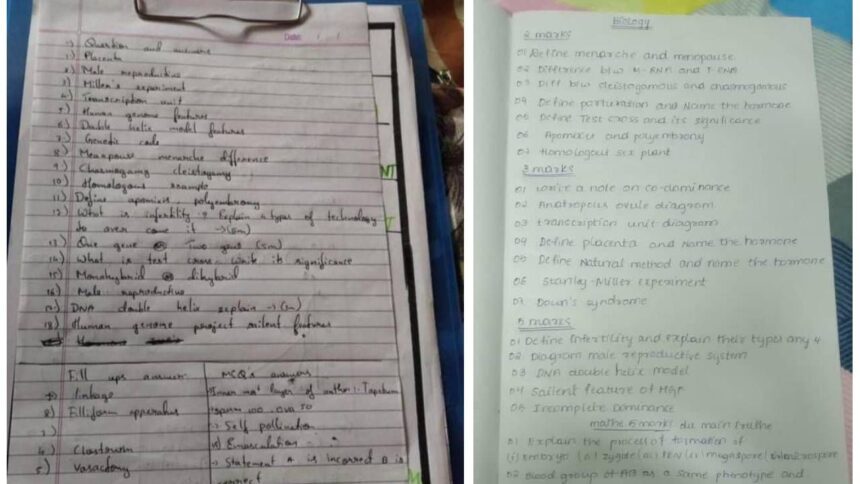 Date: / /
1) Question and answers
1) Placenta
2) Male reproductive
3) Miller's experiment
4) Transcription unit
5) Human genome features
6) Double helix model features
7) Genetic code
8) Menopause menarche difference
9) Chasmogamy cleistogamy
10) Homologous example
11) Define apomixis, polyembryony
12) What is infertility? Explain 4 types of technology
to over come it → (5m)
13) One gene Two gene (5m)
14) What is test cross write its significance
15) Monohybrid dihybrid
16) Male reproductive
DNA double helix explain → (5m)
18) Human genome project silent features
Fill ups answer
linkage
2) Filliform apparatus
3)
4) Clostourm
5) Vasactomy
MCQ's answers
Inner most layer of anther :- Tapetum
100 - ova 50
→ Self pollination
Emasculation -
→ Statement A is incorrect B is
correct
Biology
2 marks
01 Define menarche and menopause
02 Difference b/w M-RNA and T-RNA
03 Diff b/w cleistogamous and chasmogamous
04 Define parturation and Name the hormone
05 Define Test cross and its significance
06 Apomixes and polyembrony
07 Homologous six plant
3 marks
01 write a note on co-dominance
02 Anatropous ovule diagram
03 transcription unit diagram
04 Define placenta and Name the hormone
05 Define Natural method and name the hormone
06 Stanley-Miller experiment
07 Down's syndrome
5 marks
01 Define Infertility and explain their types any 4
02 Diagram male reproductive system
03 DNA double helix model
04 Sailent feature of HGP
05 Incomplete Dominance
mathe 5 marks du main
01 Explain the process of formation of
(i) embryo (ii) zygote (iii) PEN (iv) megaspore
02 Blood group of AB as a same phenotype and